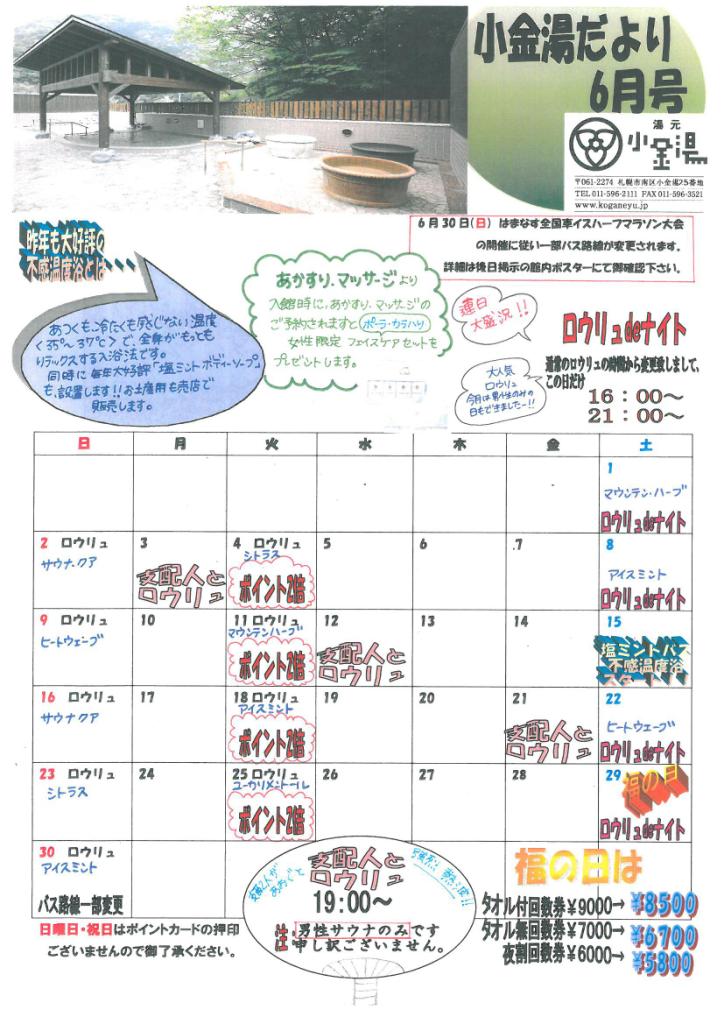 小金湯だより
6月号
湯元
小金湯
〒061-2274 札幌市南区小金湯25番地
TEL 011-596-2111 FAX 011-596-3521
www.koganeyu.jp
6月30日(日) はまなす全国車イスハーフマラソン大会
の開催に従い一部バス路線が変更されます。
詳細は後日掲示の館内ポスターにて御確認下さい。
昨年も大好評の
不感温度浴とは・・・
あつくも、冷たくも感じない温度
<35℃～37℃>で、全身がもっとも
リラックスする入浴法です。
同時に毎年大好評「塩ミントボディーソープ」
も、設置します!!お土産用も売店で
販売します。
あかすり、マッサージより
入館時に、あかすり、マッサージの
ご予約されますと ポーラ・カラハリ
女性限定 フェイスケアセットを
プレゼントします。
連日
大盛況!!
大人気
ロウリュ
今月は男性のみの
日もできましたー!!
ロウリュdeナイト
通常のロウリュの時間から変更致しまして、
この日だけ
16:00～
21:00～
日 月 火 水 木 金 土
1
マウンテン・ハーブ
ロウリュdeナイト
2 ロウリュ
サウナ・クア
3
支配人と
ロウリュ
4 ロウリュ
シトラス
ポイント2倍
5
6
7
8
アイスミント
ロウリュdeナイト
9 ロウリュ
ヒートウェーブ
10
11 ロウリュ
マウンテンハーブ
ポイント2倍
12
支配人と
ロウリュ
13
14
15
塩ミントバス
不感温度浴
スタート
16 ロウリュ
サウナクア
17
18 ロウリュ
アイスミント
ポイント2倍
19
20
21
支配人と
ロウリュ
22
ヒートウェーブ
ロウリュdeナイト
23 ロウリュ
シトラス
24
25 ロウリュ
ユーカリメントール
ポイント2倍
26
27
28
29
福の日
ロウリュdeナイト
30 ロウリュ
アイスミント
バス路線一部変更
日曜日・祝日はポイントカードの押印
ございませんので御了承ください。
支配人が
あおぐと
支配人と
ロウリュ
19:00～
注 男性サウナのみです
申し訳ございません。
福の日は
タオル付回数券¥9000→ ¥8500
タオル無回数券¥7000→ ¥6700
夜割回数券¥6000→ ¥5800